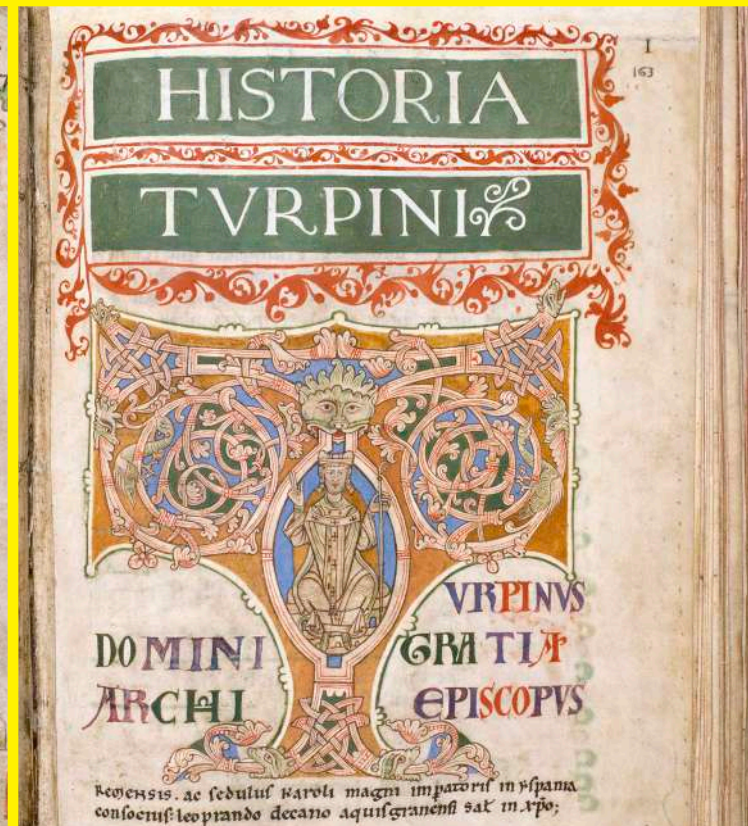 I
163
HISTORIA
TVRPINI
TVRPINVS
DOMINI GRATIÆ
ARCHI EPISCOPVS
Remensis. ac sedulus karoli magni impatoris in yspania
consocius: leoprando decano aquisgranensi sał in xp̄o;